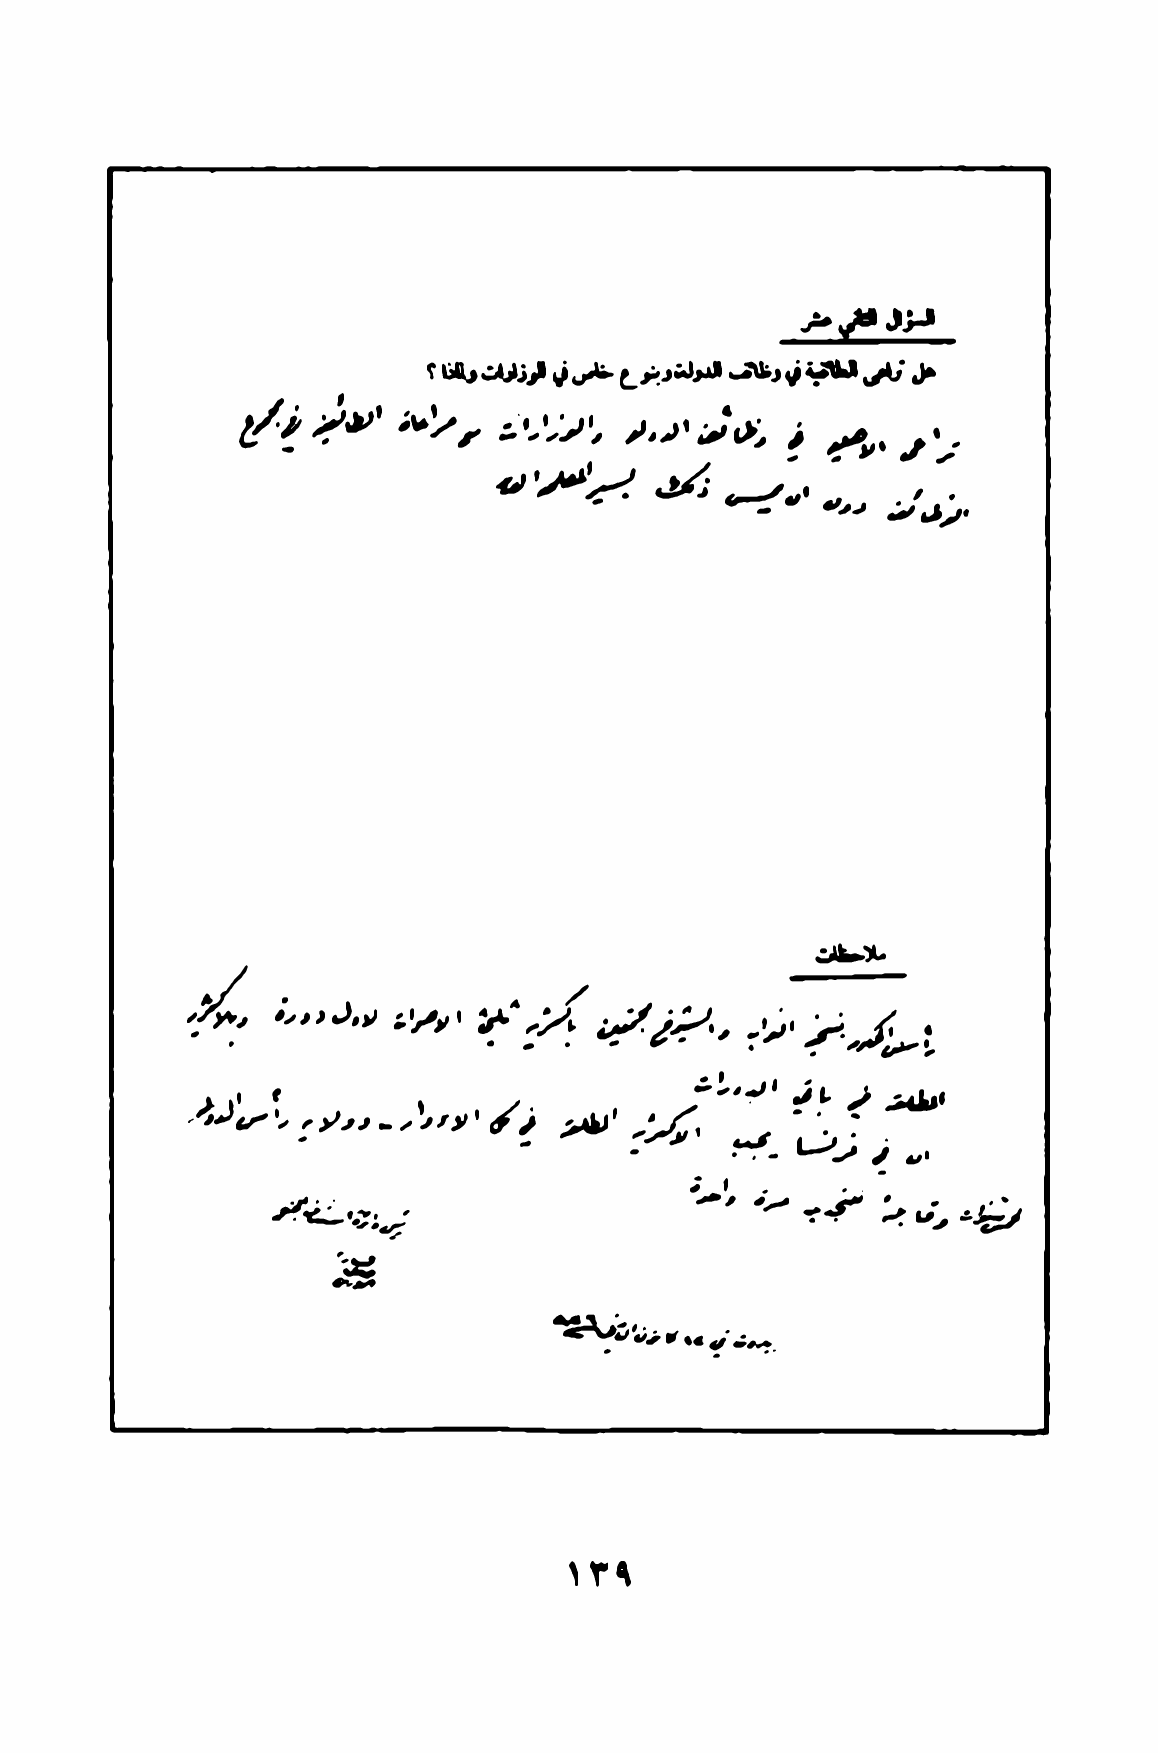 السؤال الثاني عشر
هل تراعى الطائفية في وظائف الدولة وبنوع خاص في الوزارات ولماذا ؟
تراعى الاهلية في وظائف الدولة والوزارات مع مراعاة الطائفية في مجموع
الوظائف دون ان يمس ذلك بسير المصلحة العامة
ملاحظات
رأس الجمهورية ينتخبه النواب والشيوخ مجتمعين باكثرية ثلثي الاصوات لاول دورة وبالاكثرية
المطلقة في باقي الدورات
ان في فرنسا يجب الاكثرية المطلقة في كل الادوار - وولاية رأس الدولة
خمس سنوات وقابلة للتجديد مرة واحدة
بيروت في ١٥ كانون الثاني ٩٢٦
١٣٩